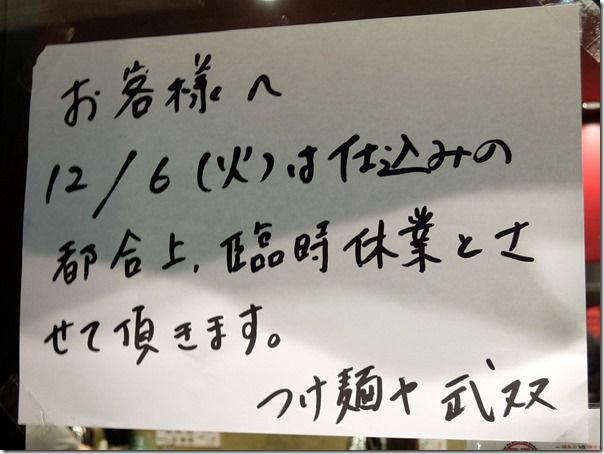 お客様へ
12/6(火)は仕込みの
都合上、臨時休業とさ
せて頂きます。
つけ麺ヤ 武双